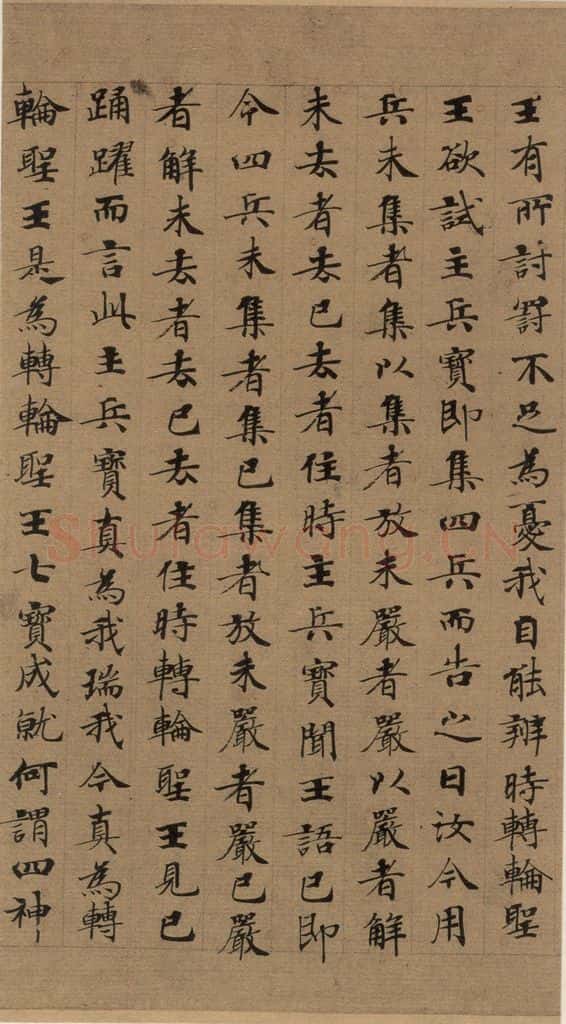 王有所討罸不足為憂我自能辦時轉輪聖
王欲試主兵寶即集四兵而告之曰汝今用
兵未集者集以集者放未嚴者嚴以嚴者解
未去者去已去者住時主兵寶聞王語已即
令四兵未集者集已集者放未嚴者嚴已嚴
者解未去者去已去者住時轉輪聖王見已
踊躍而言此主兵寶真為我瑞我今真為轉
輪聖王是為轉輪聖王七寶成就何謂四神
Shufawang.CN